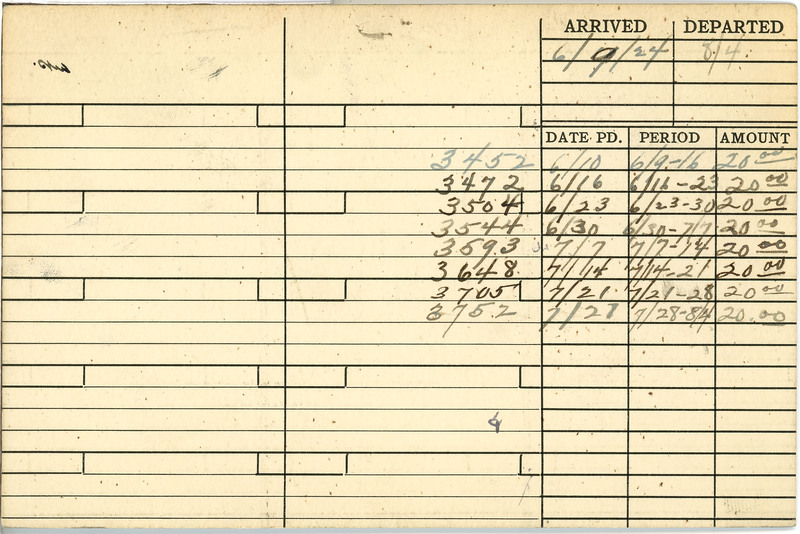 ARRIVED DEPARTED
6/9/24 8/4
DATE PD. PERIOD AMOUNT
3452 6/10 6/9-16 20 00
3472 6/16 6/16-23 20 00
3504 6/23 6/23-30 20 00
3544 6/30 6/30-7/7 20 00
3593 7/7 7/7-14 20 00
3648 7/14 7/14-21 20 00
3705 7/21 7/21-28 20 00
3752 7/27 7/28-8/4 20.00